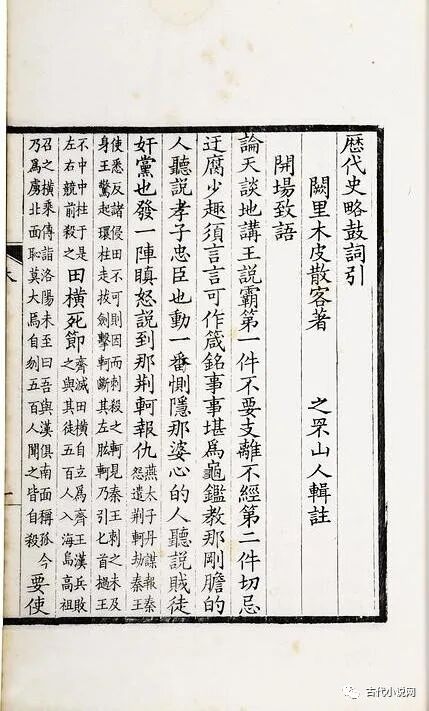 歴代史略鼓詞引
闕里木皮散客著　之罘山人輯註
開場致語
論天談地講王說霸第一件不要支離不經第二件切忌
迂腐少趣須言言可作箴銘事事堪為龜鑑教那剛膽的
人聽說孝子忠臣也動一番惻隱那婆心的人聽說賊徒
奸黨也發一陣瞋怒說到那荆軻報仇
燕太子丹謀報秦
怨遣荆軻劫秦王
使悉反諸侵田不可則因而刺殺之軻見秦王刺之未及
身王驚起環柱走拔劍擊軻斷其左肱軻乃引匕首擿王
不中中柱于是
左右競前殺之
田橫死節
齊滅田橫自立為齊王漢兵敗
之與其徒五百人入海島高祖
召之橫乘傳詣洛陽未至曰吾與漢俱南面稱孤今
乃為虜北面恥莫大焉自刎五百人聞之皆自殺
要使
一
古代小说网